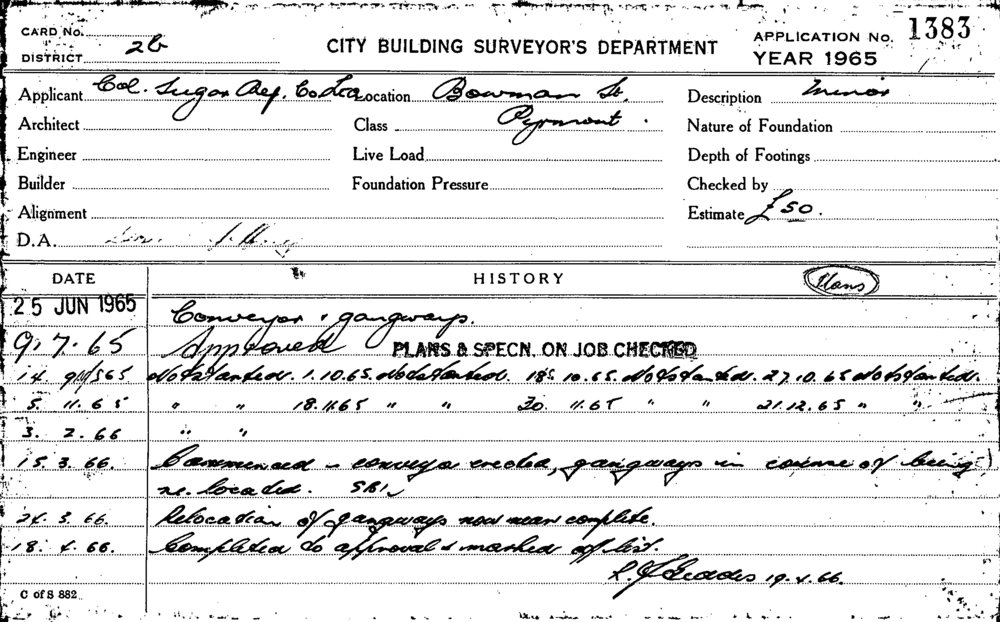 CARD No.
DISTRICT 2b
CITY BUILDING SURVEYOR'S DEPARTMENT
APPLICATION No. 1383
YEAR 1965
Applicant Col. Sugar Ref. Co Ltd Location Bowman St. Description Minor
Architect Class Pyrmont. Nature of Foundation
Engineer Live Load Depth of Footings
Builder Foundation Pressure Checked by
Alignment Estimate £50.
D.A.
DATE HISTORY Plans
25 JUN 1965 Conveyor & gangways.
9.7.65 Approved PLANS & SPECN. ON JOB CHECKED
14. 9 65 Not started. 1.10.65. Not started. 18. 10.65. Not started. 27.10.65 Not started.
5. 11.65 " " 18.11.65 " " 30. 11.65 " " 21.12.65 " "
3. 2.66 " "
15.3.66. Commenced - conveyor erected, gangways in course of being
re-located.
24.3.66. Relocation of gangways now near complete.
18.4.66. Completed to approval & marked off list.
19.4.66.
C of S 882